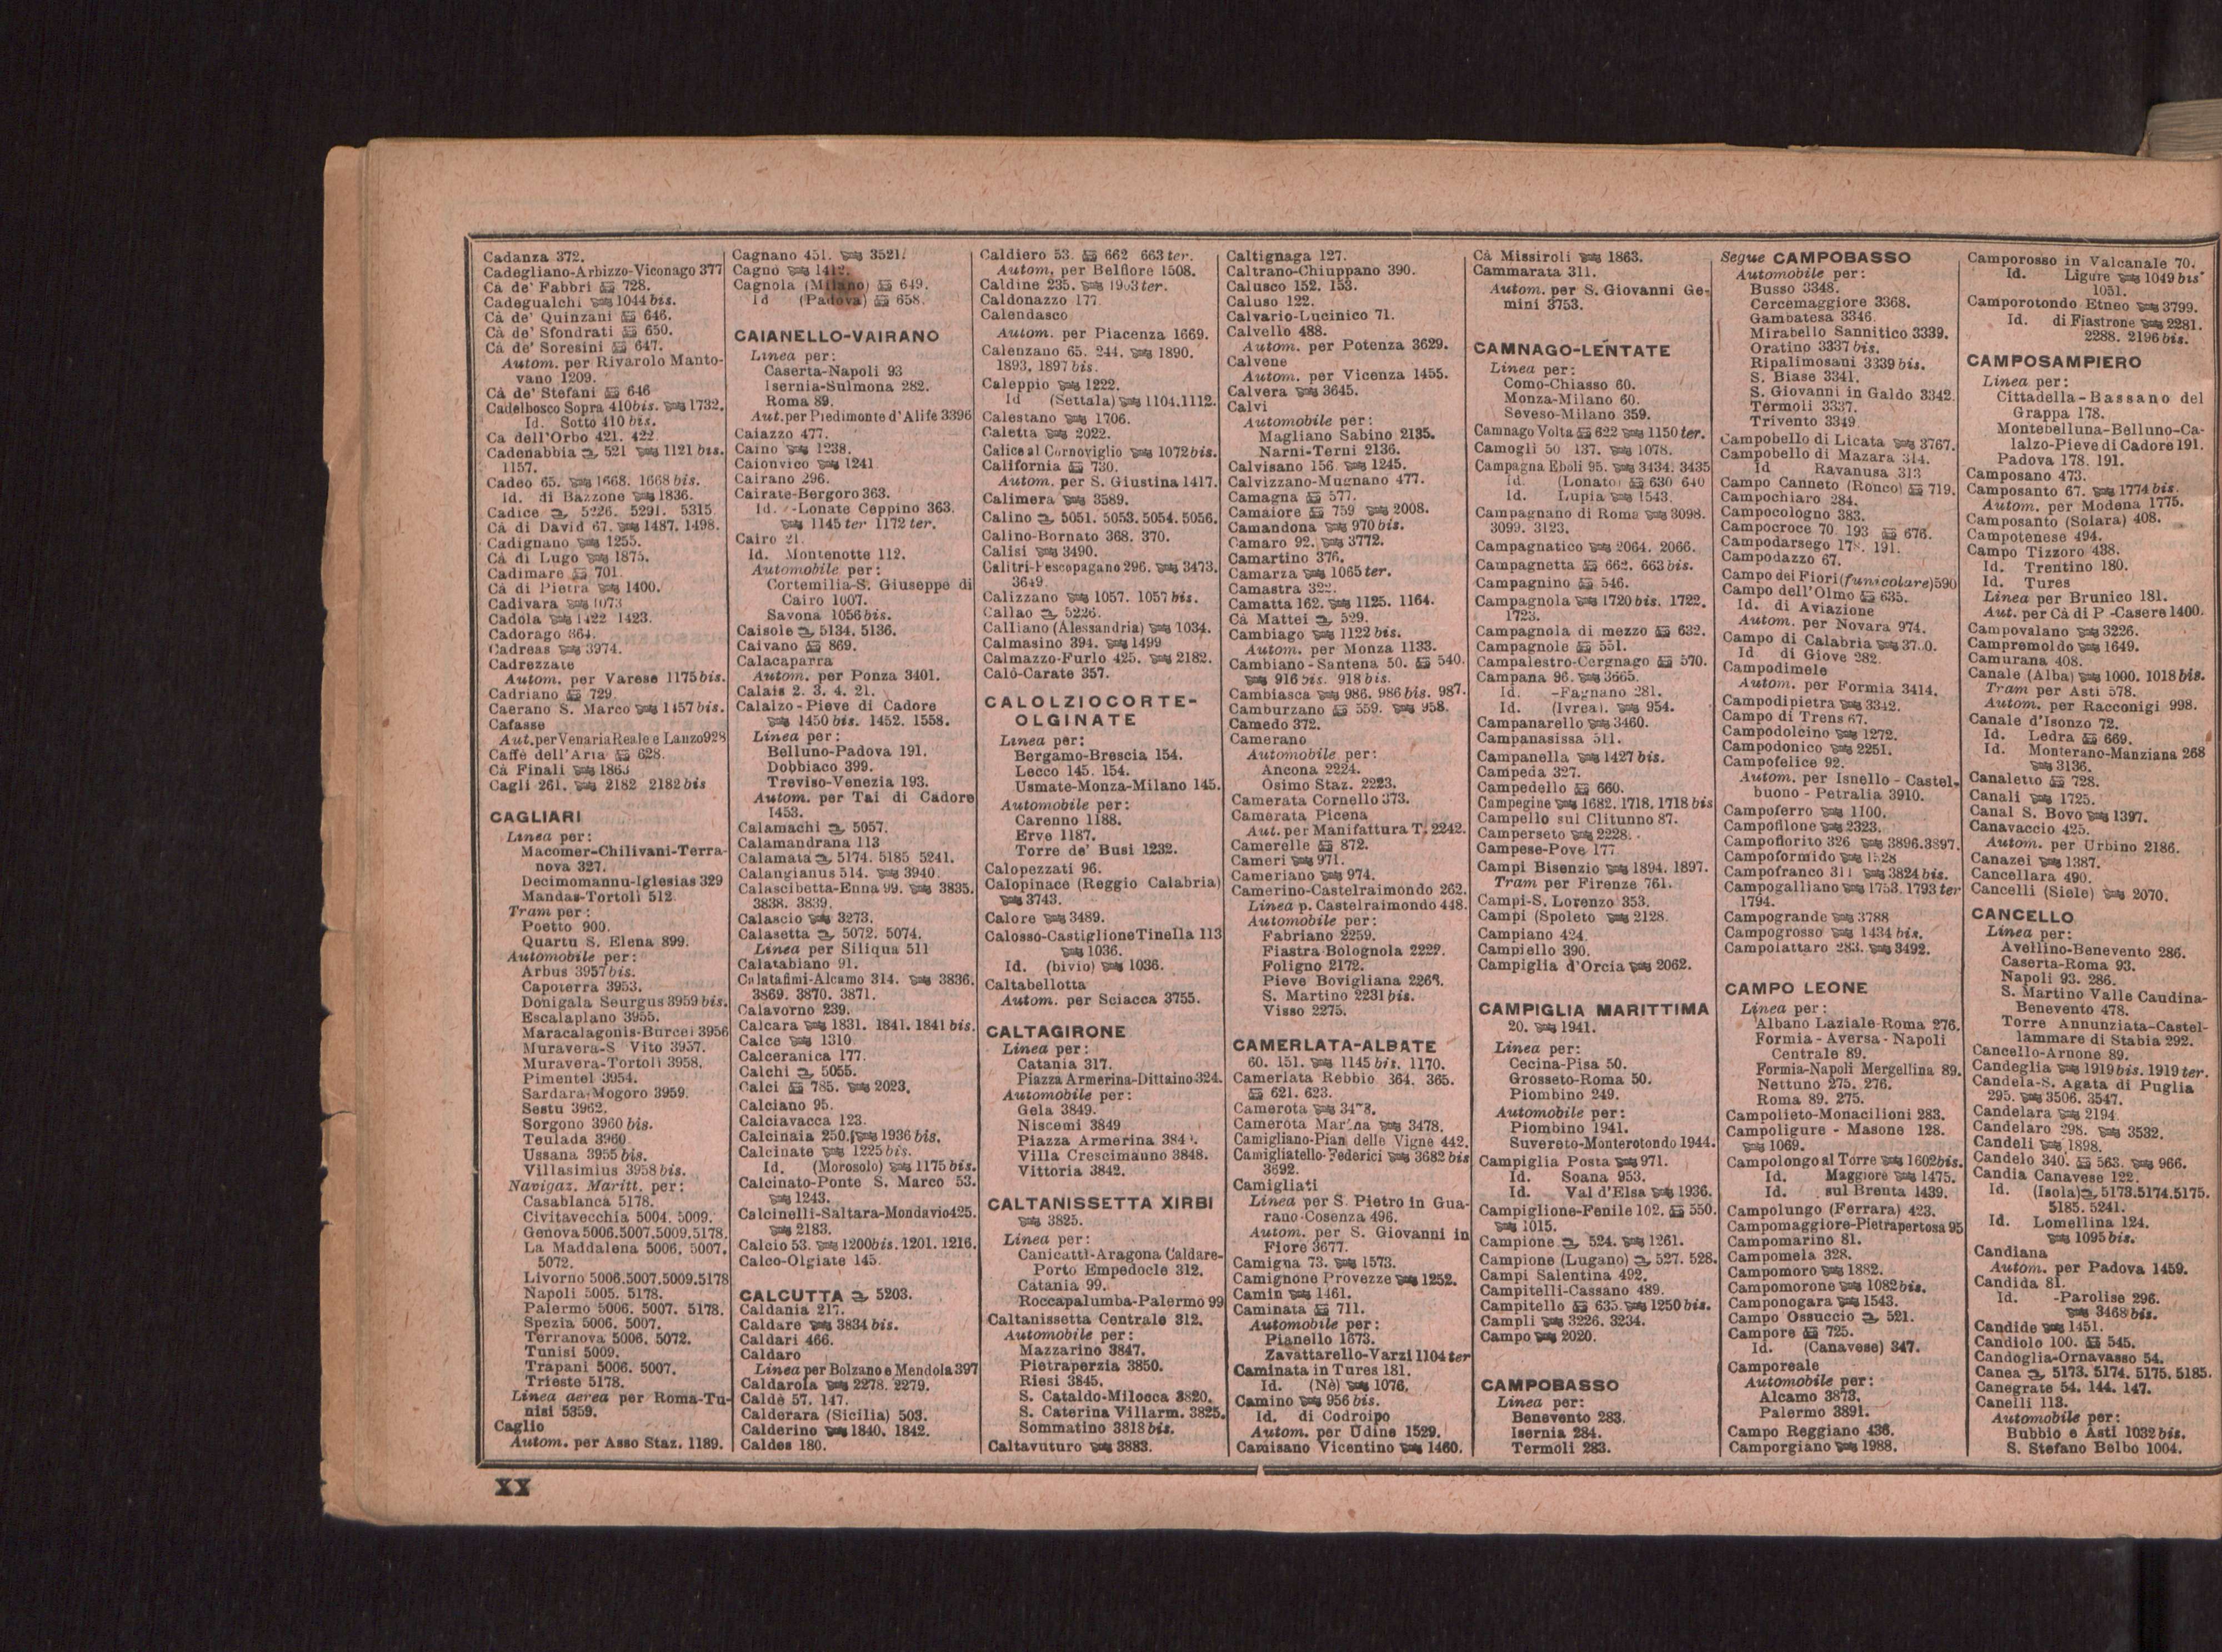 Cadanza 372.
Cadegliano-Arbizzo-Viconago 377
Cà de' Fabbri 728.
Cadegualchi 1044 bis.
Cà de' Quinzani 646.
Cà de' Sfondrati 650.
Cà de' Soresini 647.
Autom. per Rivarolo Manto-
vano 1209.
Cà de' Stefani 646
Cadelbosco Sopra 410 bis. 1732.
Id. Sotto 410 bis.
Ca dell'Orbo 421. 422
Cadenabbia 521 1121 bis.
1157.
Cadeo 65. 1668. 1668 bis.
Id. di Bazzone 1836.
Cadice 5226. 5291. 5315
Cà di David 67. 1487. 1498.
Cadignano 1255.
Cà di Lugo 1875.
Cadimare 701.
Cà di Pietra 1400.
Cadivara 1073
Cadola 1422 1423.
Cadorago 364.
Cadreas 3974.
Cadrezzate
Autom. per Varese 1175 bis.
Cadriano 729.
Caerano S. Marco 1457 bis.
Cafasse
Aut. per Venaria Reale e Lanzo 928
Caffè dell'Aria 628.
Cà Finali 1863
Cagli 261. 2182 2182 bis
CAGLIARI
Linea per:
Macomer-Chilivani-Terra-
nova 327.
Decimomannu-Iglesias 329
Mandas-Tortolì 512
Tram per:
Poetto 900.
Quartu S. Elena 899.
Automobile per:
Arbus 3957 bis.
Capoterra 3953.
Donigala Seurgus 3959 bis.
Escalaplano 3955.
Maracalagonis-Burcei 3956
Muravera-S Vito 3957.
Muravera-Tortolì 3958.
Pimentel 3954.
Sardara-Mogoro 3959.
Sestu 3962.
Sorgono 3960 bis.
Teulada 3960
Ussana 3955 bis.
Villasimius 3958 bis.
Navigaz. Maritt. per:
Casablanca 5178.
Civitavecchia 5004. 5009.
Genova 5006.5007.5009.5178.
La Maddalena 5006. 5007.
5072.
Livorno 5006.5007.5009.5178
Napoli 5005. 5178.
Palermo 5006. 5007. 5178.
Spezia 5006. 5007.
Terranova 5006. 5072.
Tunisi 5009.
Trapani 5006. 5007.
Trieste 5178.
Linea aerea per Roma-Tu-
nisi 5359.
Caglio
Autom. per Asso Staz. 1189.
Cagnano 451. 3521.
Cagnò 1412.
Cagnola (Milano) 649.
Id (Padova) 658.
CAIANELLO-VAIRANO
Linea per:
Caserta-Napoli 93
Isernia-Sulmona 282.
Roma 89.
Aut. per Piedimonte d'Alife 3396
Caiazzo 477.
Caino 1238.
Caionvico 1241
Cairano 296.
Cairate-Bergoro 363.
Id. -Lonate Ceppino 363.
1145 ter 1172 ter.
Cairo 21.
Id. Montenotte 112.
Automobile per:
Cortemilia-S. Giuseppe di
Cairo 1007.
Savona 1056 bis.
Caisole 5134. 5136.
Caivano 869.
Calacaparra
Autom. per Ponza 3401.
Calais 2. 3. 4. 21.
Calalzo-Pieve di Cadore
1450 bis. 1452. 1558.
Linea per:
Belluno-Padova 191.
Dobbiaco 399.
Treviso-Venezia 193.
Autom. per Tai di Cadore
1453.
Calamachi 5057.
Calamandrana 113
Calamata 5174. 5185 5241.
Calangianus 514. 3940.
Calascibetta-Enna 99. 3835.
3838. 3839.
Calascio 3273.
Calasetta 5072. 5074.
Linea per Siliqua 511
Calatabiano 91.
Calatafimi-Alcamo 314. 3836.
3869. 3870. 3871.
Calavorno 239.
Calcara 1831. 1841. 1841 bis.
Calce 1310
Calceranica 177.
Calchi 5055.
Calci 785. 2023.
Calciano 95.
Calciavacca 123.
Calcinaia 250. 1936 bis.
Calcinate 1225 bis.
Id. (Morosolo) 1175 bis.
Calcinato-Ponte S. Marco 53.
1243.
Calcinelli-Saltara-Mondavio 425.
2183.
Calcio 53. 1200 bis. 1201. 1216.
Calco-Olgiate 145.
CALCUTTA 5203.
Caldania 217.
Caldare 3834 bis.
Caldari 466.
Caldaro
Linea per Bolzano e Mendola 397
Caldarola 2278. 2279.
Caldè 57. 147.
Calderara (Sicilia) 503.
Calderino 1840. 1842.
Caldes 180.
Caldiero 53. 662 663 ter.
Autom. per Belfiore 1508.
Caldine 235. 1903 ter.
Caldonazzo 177.
Calendasco
Autom. per Piacenza 1669.
Calenzano 65. 244. 1890.
1893. 1897 bis.
Caleppio 1222.
Id (Settala) 1104.1112.
Calestano 1706.
Caletta 2022.
Calice al Cornoviglio 1072 bis.
California 730.
Autom. per S. Giustina 1417.
Calimera 3589.
Calino 5051. 5053. 5054. 5056.
Calino-Bornato 368. 370.
Calisi 3490.
Calitri-Pescopagano 296. 3473.
3649.
Calizzano 1057. 1057 bis.
Callao 5226.
Calliano (Alessandria) 1034.
Calmasino 394. 1499
Calmazzo-Furlo 425. 2182.
Calò-Carate 357.
CALOLZIOCORTE-
OLGINATE
Linea per:
Bergamo-Brescia 154.
Lecco 145. 154.
Usmate-Monza-Milano 145.
Automobile per:
Carenno 1188.
Erve 1187.
Torre de' Busi 1232.
Calopezzati 96.
Calopinace (Reggio Calabria)
3743.
Calore 3489.
Calosso-Castiglione Tinella 113
1036.
Id. (bivio) 1036.
Caltabellotta
Autom. per Sciacca 3755.
CALTAGIRONE
Linea per:
Catania 317.
Piazza Armerina-Dittaino 324.
Automobile per:
Gela 3849.
Niscemi 3849
Piazza Armerina
Villa Crescimanno 3848.
Vittoria 3842.
CALTANISSETTA XIRBI
3825.
Linea per:
Canicattì-Aragona Caldare-
Porto Empedocle 312.
Catania 99.
Roccapalumba-Palermo 99
Caltanissetta Centrale 312.
Automobile per:
Mazzarino 3847.
Pietraperzia 3850.
Riesi 3845.
S. Cataldo-Milocca 3820.
S. Caterina Villarm. 3825.
Sommatino 3818 bis.
Caltavuturo 3883.
Caltignaga 127.
Caltrano-Chiuppano 390.
Calusco 152. 153.
Caluso 122.
Calvario-Lucinico 71.
Calvello 488.
Autom. per Potenza 3629.
Calvene
Autom. per Vicenza 1455.
Calvera 3645.
Calvi
Automobile per:
Magliano Sabino 2135.
Narni-Terni 2136.
Calvisano 156. 1245.
Calvizzano-Mugnano 477.
Camagna 577.
Camaiore 759 2008.
Camandona 970 bis.
Camaro 92. 3772.
Camartino 376.
Camarza 1065 ter.
Camastra 322.
Camatta 162. 1125. 1164.
Cà Mattei 529.
Cambiago 1122 bis.
Autom. per Monza 1133.
Cambiano-Santena 50. 540.
916 bis. 918 bis.
Cambiasca 986. 986 bis. 987.
Camburzano 559. 958.
Camedo 372.
Camerano
Automobile per:
Ancona 2224.
Osimo Staz. 2223.
Camerata Cornello 373.
Camerata Picena
Aut. per Manifattura T. 2242.
Camerelle 872.
Cameri 971.
Cameriano 974.
Camerino-Castelraimondo 262.
Linea p. Castelraimondo 448.
Automobile per:
Fabriano 2259.
Fiastra-Bolognola 2222.
Foligno 2172.
Pieve Bovigliana 2268.
S. Martino 2231 bis.
Visso 2275.
CAMERLATA-ALBATE
60. 151. 1145 bis. 1170.
Camerlata Rebbio 364. 365.
621. 623.
Camerota 3478.
Camerota Marina 3478.
Camigliano-Pian delle Vigne 442.
Camigliatello-Federici 3682 bis
3692.
Camigliati
Linea per S. Pietro in Gua-
rano-Cosenza 496.
Autom. per S. Giovanni in
Fiore 3677.
Camigua 73. 1573.
Camignone Provezze 1252.
Camin 1461.
Caminata 711.
Automobile per:
Pianello 1673.
Zavattarello-Varzi 1104 ter
Caminata in Tures 181.
Id. (Nè) 1076.
Camino 956 bis.
Id. di Codroipo
Autom. per Udine 1529.
Camisano Vicentino 1460.
Cà Missiroli 1863.
Cammarata 311.
Autom. per S. Giovanni Ge-
mini 3753.
CAMNAGO-LENTATE
Linea per:
Como-Chiasso 60.
Monza-Milano 60.
Seveso-Milano 359.
Camnago Volta 622 1150 ter.
Camogli 50 137. 1078.
Campagna Eboli 95. 3434. 3435
Id. (Lonato) 630 640
Id. Lupia 1543.
Campagnano di Roma 3098.
3099. 3123.
Campagnatico 2064. 2066.
Campagnetta 662. 663 bis.
Campagnino 546.
Campagnola 1720 bis. 1722.
1723.
Campagnola di mezzo 632.
Campagnole 551.
Campalestro-Cergnago 570.
Campana 96. 3665.
Id. -Fagnano 281.
Id. (Ivrea). 954.
Campanarello 3460.
Campanasissa 511.
Campanella 1427 bis.
Campeda 327.
Campedello 660.
Campegine 1682. 1718. 1718 bis
Campello sul Clitunno 87.
Camperseto 2228.
Campese-Pove 177
Campi Bisenzio 1894. 1897.
Tram per Firenze 761.
Campi-S. Lorenzo 353.
Campi (Spoleto 2128.
Campiano 424.
Campiello 390.
Campiglia d'Orcia 2062.
CAMPIGLIA MARITTIMA
20. 1941.
Linea per:
Cecina-Pisa 50.
Grosseto-Roma 50.
Piombino 249.
Automobile per:
Piombino 1941.
Suvereto-Monterotondo 1944.
Campiglia Posta 971.
Id. Soana 953.
Id. Val d'Elsa 1936.
Campiglione-Fenile 102. 550.
1015.
Campione 524. 1261.
Campione (Lugano) 527. 528.
Campi Salentina 492.
Campitelli-Cassano 489.
Campitello 635. 1250 bis.
Campli 3226. 3234.
Campo 2020.
CAMPOBASSO
Linea per:
Benevento 283.
Isernia 284.
Termoli 283.
Segue CAMPOBASSO
Automobile per:
Busso 3348.
Cercemaggiore 3368.
Gambatesa 3346.
Mirabello Sannitico 3339.
Oratino 3337 bis.
Ripalimosani 3339 bis.
S. Biase 3341.
S. Giovanni in Galdo 3342.
Termoli 3337.
Trivento 3349
Campobello di Licata 3767.
Campobello di Mazara 314.
Id Ravanusa 313
Campo Canneto (Ronco) 719.
Campochiaro 284.
Campocologno 383.
Campocroce 70. 193 676.
Campodarsego 178. 191.
Campodazzo 67.
Campo dei Fiori (funicolare) 590
Campo dell'Olmo 635.
Id. di Aviazione
Autom. per Novara 974.
Campo di Calabria
Id di Giove 282.
Campodimele
Autom. per Formia 3414.
Campodipietra 3342.
Campo di Trens 67.
Campodolcino 1272.
Campodonico 2251.
Campofelice 92.
Autom. per Isnello-Castel-
buono-Petralia 3910.
Campoferro 1100.
Campofilone 2323.
Campofiorito 326 3896.3897.
Campoformido 1528
Campofranco 311 3824 bis.
Campogalliano 1753. 1793 ter
1794.
Campogrande 3788
Campogrosso 1434 bis.
Campolattaro 283. 3492.
CAMPO LEONE
Linea per:
Albano Laziale-Roma 276.
Formia-Aversa-Napoli
Centrale 89.
Formia-Napoli Mergellina 89.
Nettuno 275. 276.
Roma 89. 275.
Campolieto-Monacilioni 283.
Campoligure-Masone 128.
1069.
Campolongo al Torre 1602 bis.
Id. Maggiore 1475.
Id. sul Brenta 1439.
Campolungo (Ferrara) 423.
Campomaggiore-Pietrapertosa 95
Campomarino 81.
Campomela 328.
Campomoro 1882.
Campomorone 1082 bis.
Camponogara 1543.
Campo Ossuccio 521.
Campore 725.
Id. (Canavese) 347.
Camporeale
Automobile per:
Alcamo 3873.
Palermo 3891.
Campo Reggiano 436.
Camporgiano 1988.
Camporosso in Valcanale 70.
Id. Ligure 1049 bis
1051.
Camporotondo Etneo 3799.
Id. di Fiastrone 2281.
2288. 2196 bis.
CAMPOSAMPIERO
Linea per:
Cittadella-Bassano del
Grappa 178.
Montebelluna-Belluno-Ca-
lalzo-Pieve di Cadore 191.
Padova 178. 191.
Camposano 473.
Camposanto 67. 1774 bis.
Autom. per Modena 1775.
Camposanto (Solara) 408.
Campotenese 494.
Campo Tizzoro 438.
Id. Trentino 180.
Id. Tures
Linea per Brunico 181.
Aut. per Cà di P.-Casere 1400.
Campovalano 3226.
Campremoldo 1649.
Camurana 408.
Canale (Alba) 1000. 1018 bis.
Tram per Asti 578.
Autom. per Racconigi 998.
Canale d'Isonzo 72.
Id. Ledra 669.
Id. Monterano-Manziana 268
3136.
Canaletto 728.
Canali 1725.
Canal S. Bovo 1397.
Canavaccio 425.
Autom. per Urbino 2186.
Canazei 1387.
Cancellara 490.
Cancelli (Siele) 2070.
CANCELLO
Linea per:
Avellino-Benevento 286.
Caserta-Roma 93.
Napoli 93. 286.
S. Martino Valle Caudina-
Benevento 478.
Torre Annunziata-Castel-
lammare di Stabia 292.
Cancello-Arnone 89.
Candeglia 1919 bis. 1919 ter.
Candela-S. Agata di Puglia
295. 3506. 3547.
Candelara 2194
Candelaro 298. 3532.
Candeli 1898.
Candelo 340. 563. 966.
Candia Canavese 122.
Id. (Isola) 5173.5174.5175.
5185. 5241.
Id. Lomellina 124.
1095 bis.
Candiana
Autom. per Padova 1459.
Candida 81.
Id. -Parolise 296.
3468 bis.
Candide 1451.
Candiolo 100. 545.
Candoglia-Ornavasso 54.
Canea 5173. 5174. 5175. 5185.
Canegrate 54. 144. 147.
Canelli 113.
Automobile per:
Bubbio e Asti 1032 bis.
S. Stefano Belbo 1004.
XX